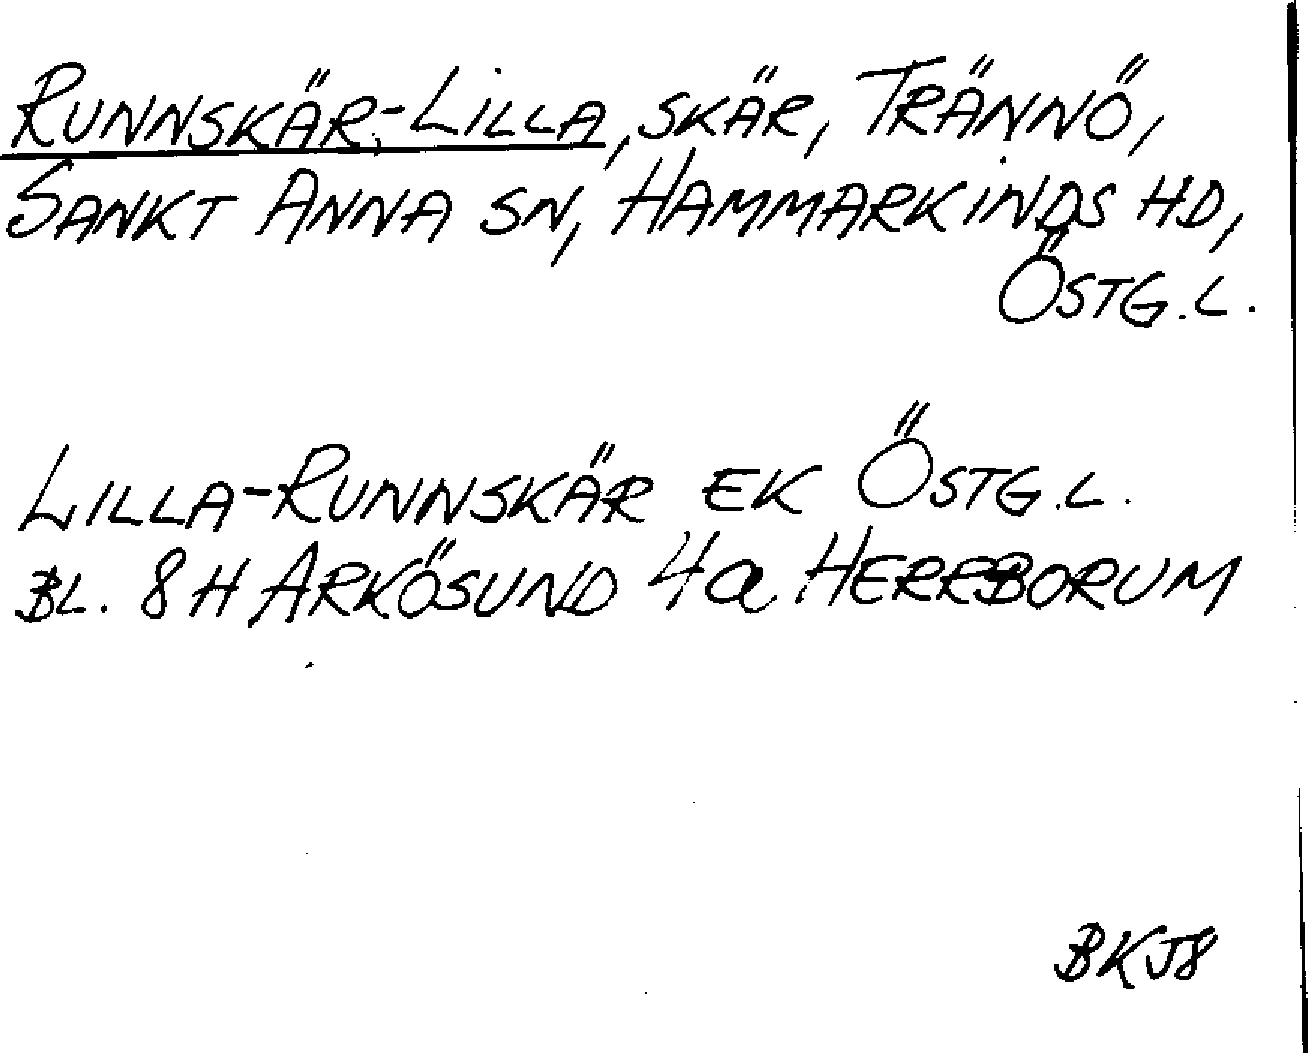 RUNNSKÄR,-LILLA, SKÄR, TRÄNNÖ,
SANKT ANNA SN, HAMMARKINDS HD,
ÖSTG.L.
LILLA-RUNNSKÄR EK ÖSTG.L.
BL. 8H ARKÖSUND 4a HERRBORUM
BKJ8